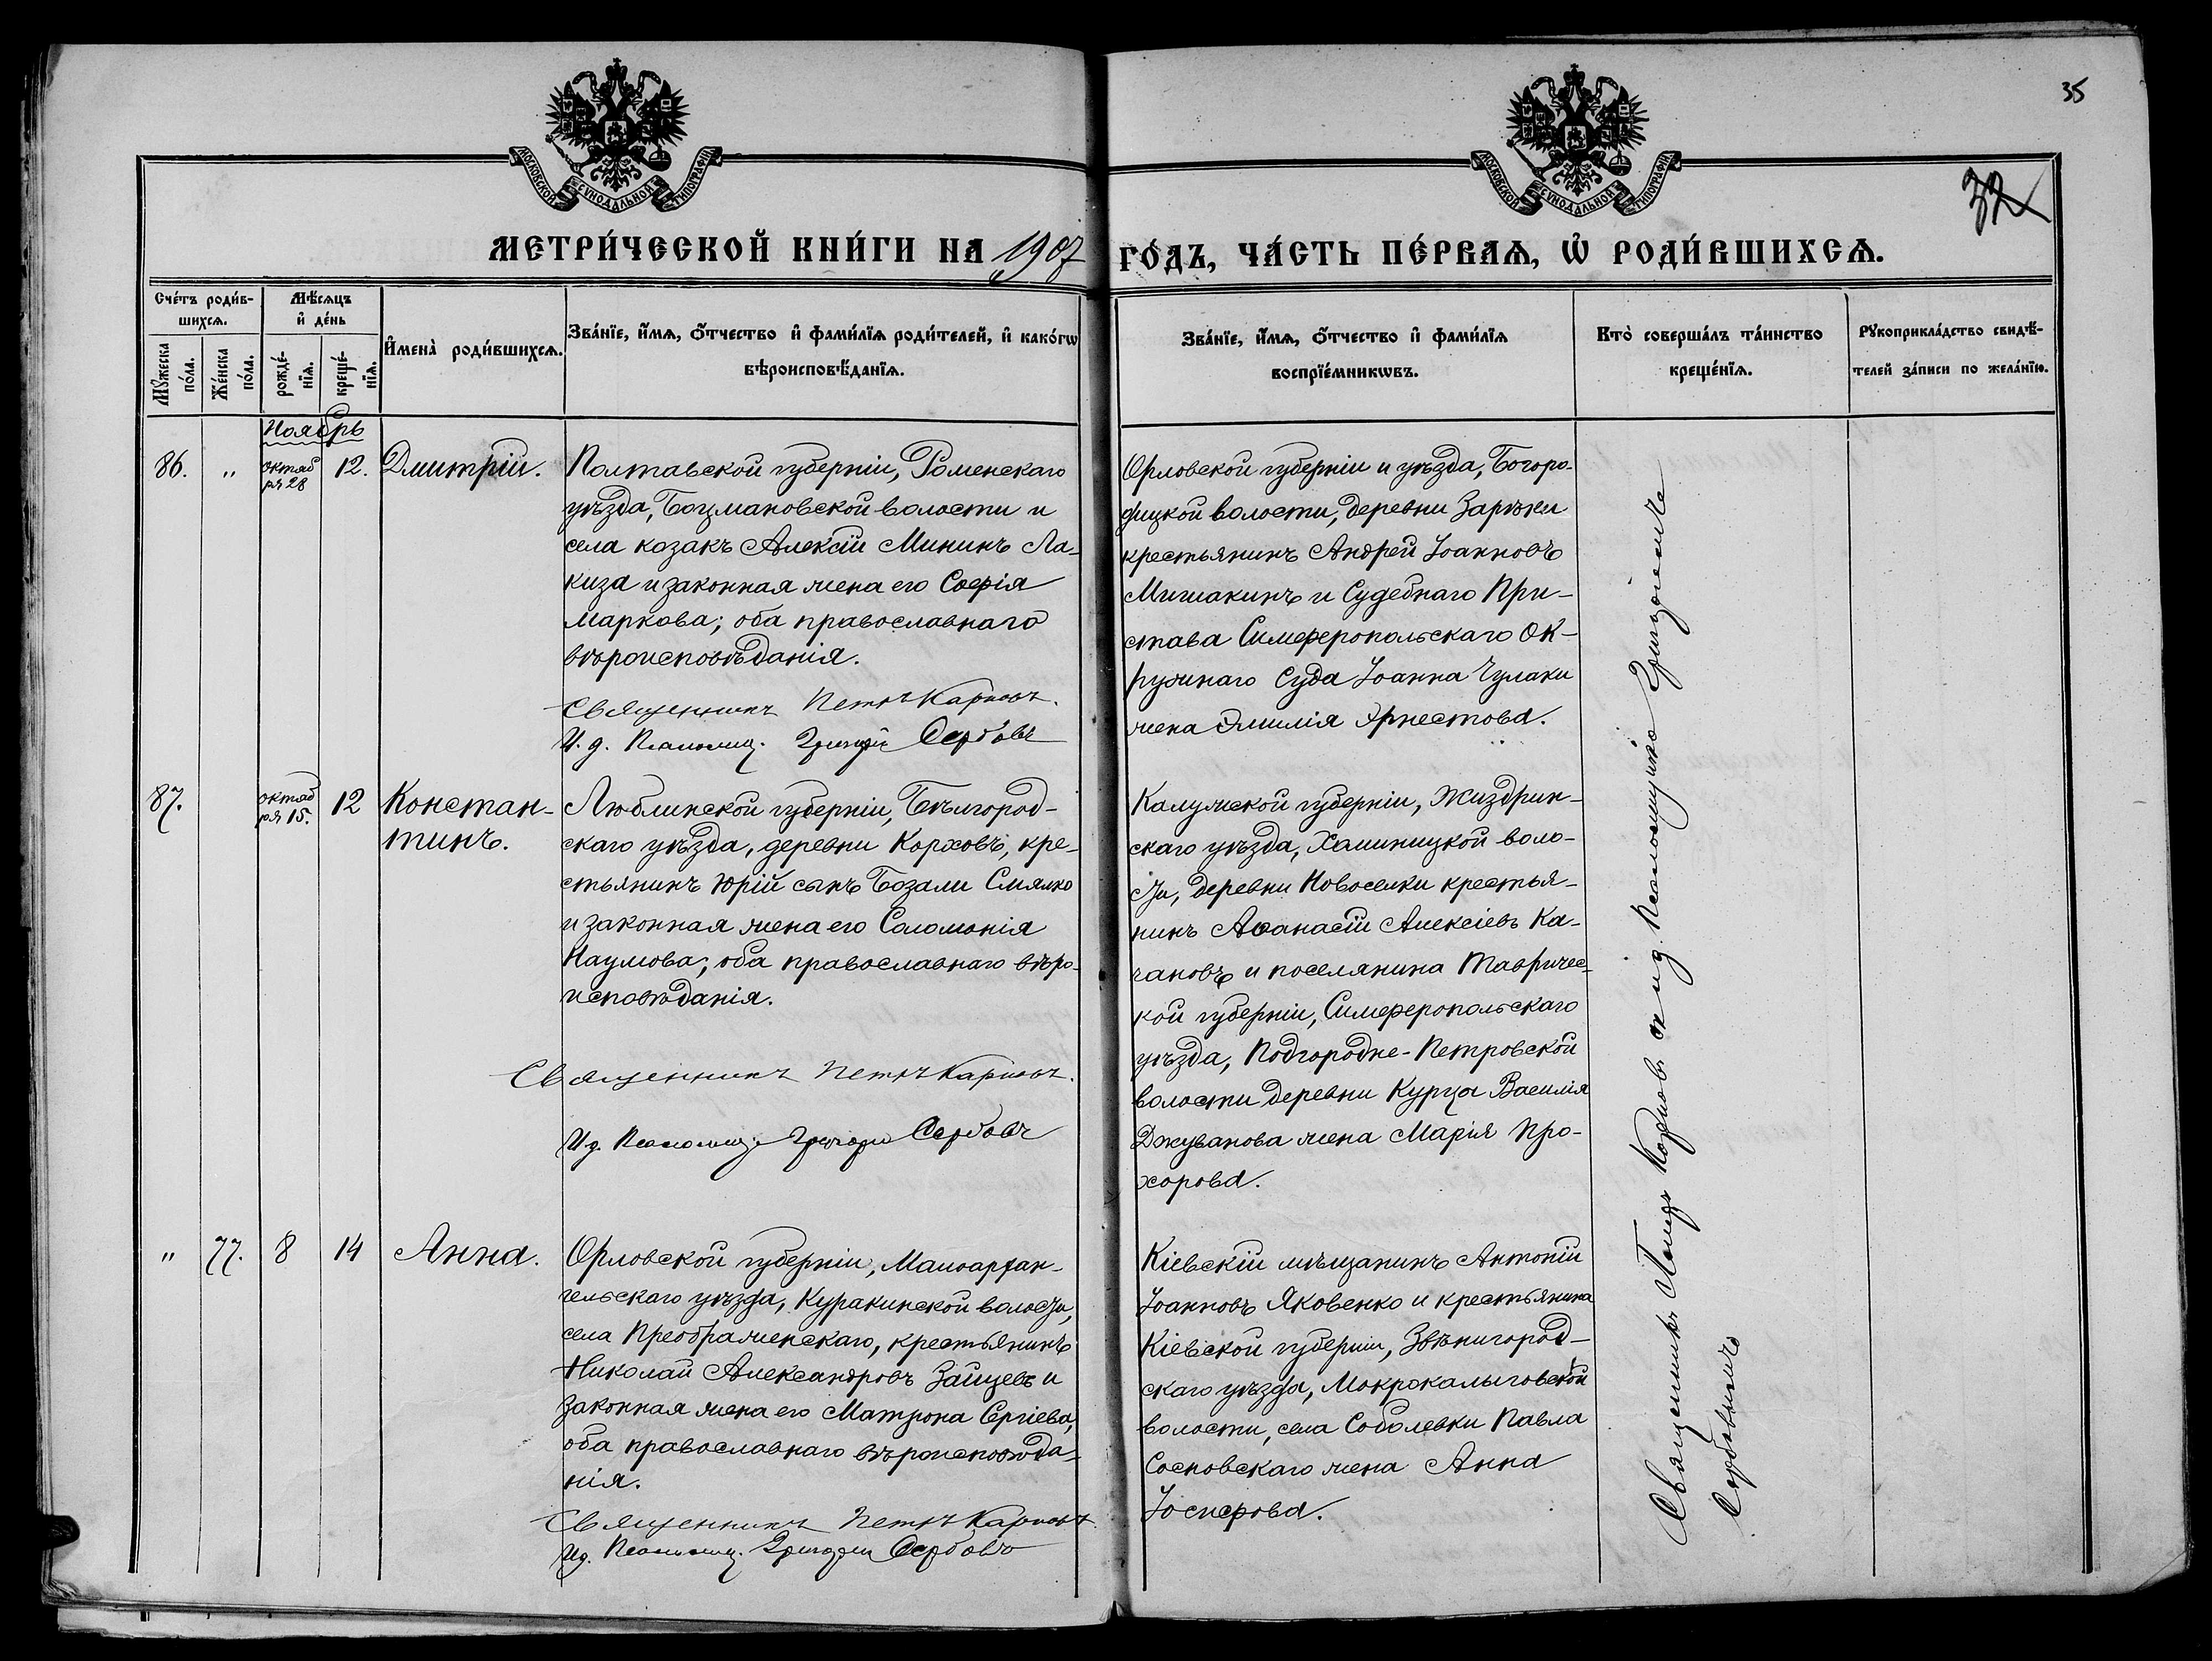 35
32
МОСКОВСКОЙ СѴНОДАЛЬНОЙ ТИПОГРАФІИ
МОСКОВСКОЙ СѴНОДАЛЬНОЙ ТИПОГРАФІИ
МЕТРИ́ЧЕСКОЙ КНИ́ГИ НА 1907 ГО́ДЪ, ЧА́СТЬ ПЕ́РВАѦ, Ѡ҆ РОДИ́ВШИХСѦ.
Сче́тъ роди́в-
шихсѧ.
Мꙋ́жеска по́ла.
Же́нска по́ла.
Мѣ́сѧцъ
и҆ де́нь
рожде́-
нїѧ.
креще́-
нїѧ.
И҆мена̀ роди́вшихсѧ.
Зва́нїе, и҆́мѧ, ѻ҆́тчество и҆ фами́лїѧ роди́телей, и҆ како́гѡ
вѣроисповѣ́данїѧ.
Зва́нїе, и҆́мѧ, ѻ҆́тчество и҆ фами́лїѧ
воспрїе́мникѡвъ.
Кто̀ соверша́лъ та́инство
креще́нїѧ.
Рꙋкоприкла́дство свидѣ́-
телей за́писи по жела́нїю.
Ноябрь
86. " октяб
ря 28 12. Дмитрій.
Полтавской губерніи, Роменскаго
уѣзда, Боцмановской волости и
села козакъ Алексій Мининъ Ла-
киза и законная жена его Софія
Маркова; оба православнаго
вѣроисповѣданія.
Священникъ Петръ Карповъ.
И. д. Псаломщ. Григорій Сербовъ
Орловской губерніи и уѣзда, Богоро-
дицкой волости, деревни Зарѣки
крестьянинъ Андрей Іоанновъ
Мишакинъ и Судебнаго При-
става Симферопольскаго Ок-
ружнаго Суда Іоанна Чулаки
жена Эмилія Эрнестова.
87. октяб
ря 15. 12 Констан-
тинъ.
Люблинской губерніи, Бѣлгород-
скаго уѣзда, деревни Корховъ, кре-
стьянинъ Юрій сынъ Бозали Смялко
и законная жена его Соломонія
Наумова; оба православнаго вѣро-
исповѣданія.
Священникъ Петръ Карповъ.
И д. Псаломщ. Григорій Сербовъ
Калужской губерніи, Жиздрин-
скаго уѣзда, Хатинцкой воло-
сти, деревни Новоселки крестья-
нинъ Аѳанасій Алексіевъ Ка-
чановъ и поселянина Тавричес-
кой губерніи, Симферопольскаго
уѣзда, Подгородне-Петровской
волости деревни Курцы Василія
Джуванова жена Марія Про-
хорова.
" 77. 8 14 Анна.
Орловской губерніи, Малоархан-
гельскаго уѣзда, Куракинской волости,
села Преображенскаго, крестьянинъ
Николай Александровъ Зайцевъ и
законная жена его Матрона Сергіева,
оба православнаго вѣроисповѣда-
нія.
Священникъ Петръ Карповъ
И д. Псаломщ. Григорій Сербовъ
Кіевскій мѣщанинъ Антоній
Іоанновъ Яковенко и крестьянина
Кіевской губерніи, Звѣнигород-
скаго уѣзда, Мокрокалыговской
волости, села Соболевки Павла
Сосновскаго жена Анна
Іосифова.
Священникъ Петръ Карповъ съ и д. Псаломщика Григоріемъ
Сербовымъ